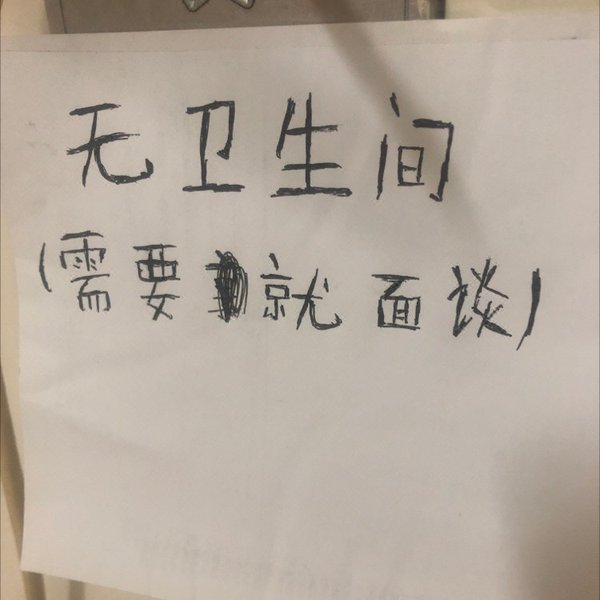 无卫生间
(需要就面谈)